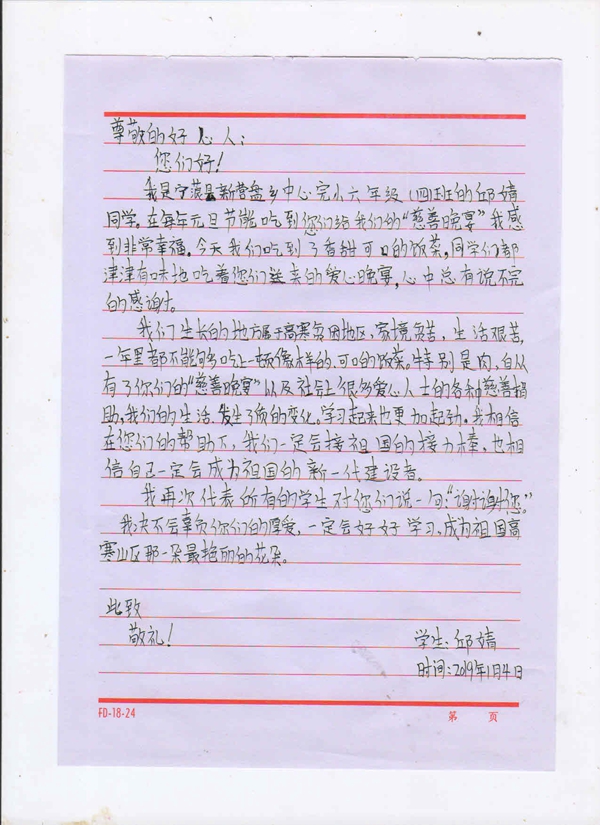 尊敬的好心人：
您们好！
我是宁蒗县新营盘乡中心完小六年级（四）班的邱婧
同学。在每年元旦节能吃到你们给我们的“慈善晚宴”我感
到非常幸福。今天我们吃到了香甜可口的饭菜，同学们都
津津有味地吃着您们送来的爱心晚宴，心中总有说不完
的感谢。
我们生长的地方属于高寒贫困地区，家境贫苦，生活艰苦，
一年里都不能够多吃上一顿像样的、可口的饭菜。特别是肉，自从
有了你们的“慈善晚宴”以及社会上很多爱心人士的各种慈善捐
助，我们的生活发生了质的变化。学习起来也更加起劲。我相信
在您们的帮助下，我们一定会接祖国的接力棒，也相
信自己一定会成为祖国的新一代建设者。
我再次代表所有的学生对您们说一句：“谢谢您。”
我决不会辜负你们的厚爱，一定会好好学习，成为祖国高
寒山区那一朵最艳丽的花朵。
此致
敬礼！
学生：邱婧
时间：2019年1月4日
FD-18-24 第 页